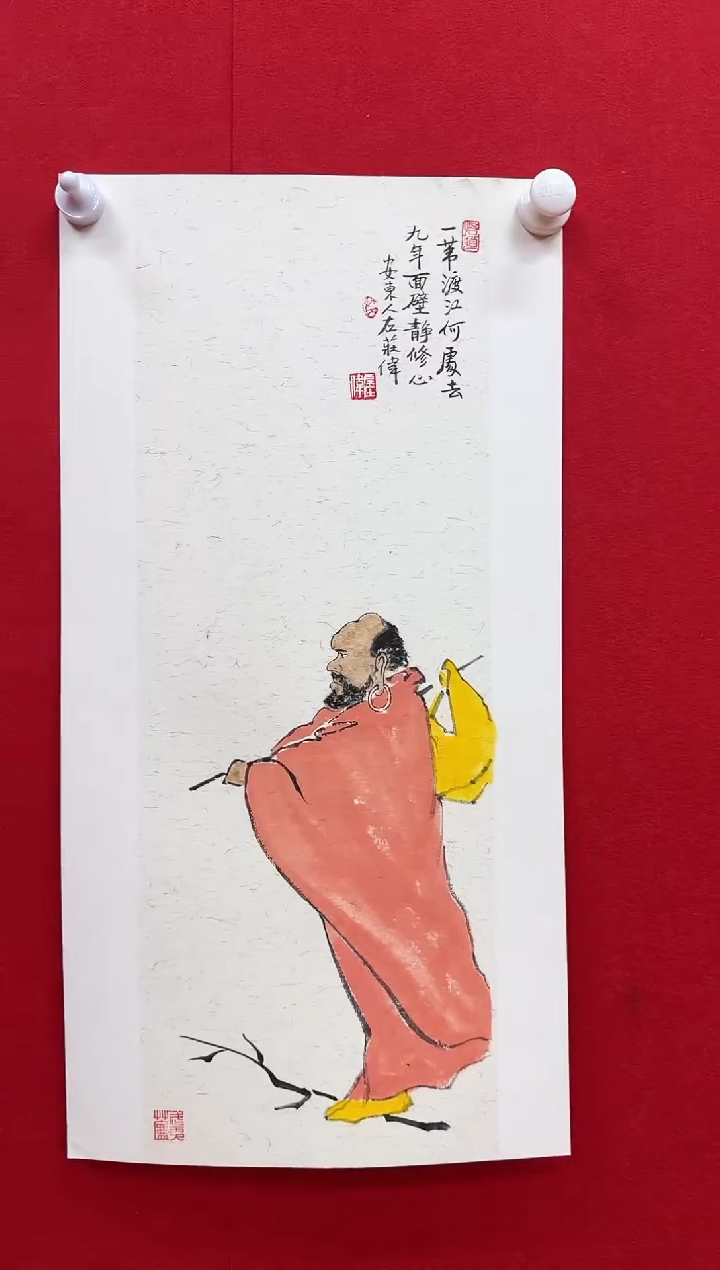 一苇渡江何處去
九年面壁靜修心
安東人左莊偉